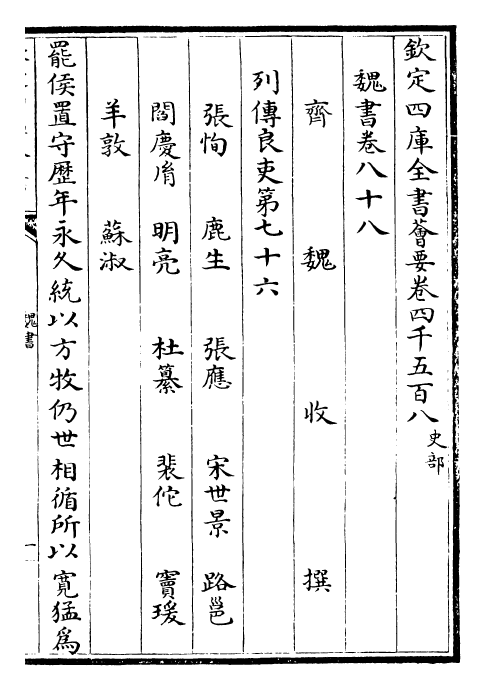 欽定四庫全書薈要卷四千五百八史部
魏書卷八十八
齊魏收撰
列傳良吏第七十六
張恂 鹿生 張應 宋世景 路邕
閻慶胤 明亮 杜纂 裴佗 竇瑗
羊敦 蘇淑
罷侯置守歴年永久統以方牧仍世相循所以寛猛為
魏書
一